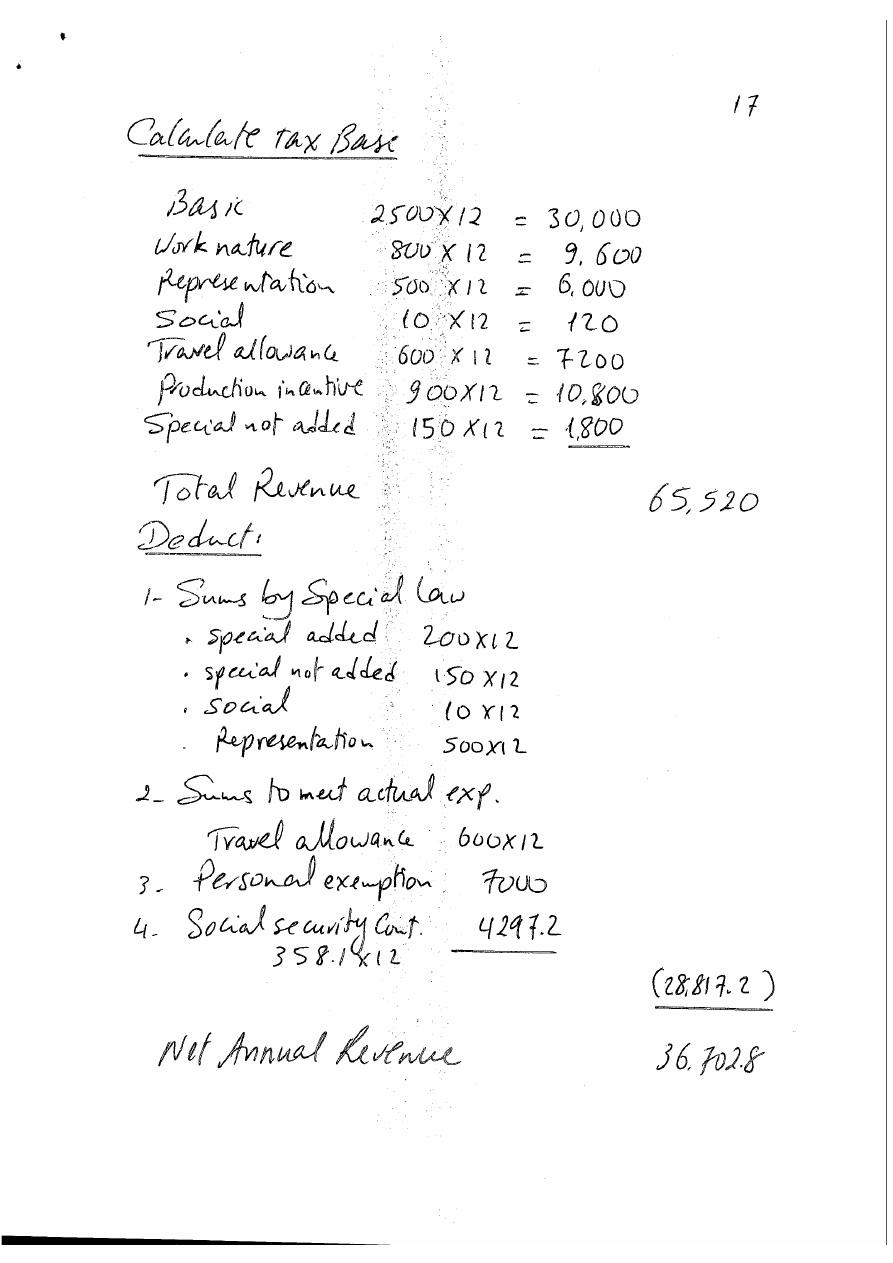 17
Calculate tax Base
Basic 2500X12 = 30,000
Work nature 800 X 12 = 9,600
Representation 500 X 12 = 6,000
Social 10 X12 = 120
Travel allowance 600 X 12 = 7200
Production incentive 900X12 = 10,800
Special not added 150 X12 = 1,800
Total Revenue 65,520
Deduct:
1- Sums by Special Law
• special added 200X12
• special not added 150 X12
• Social 10 X12
. Representation 500X12
2- Sums to meet actual exp.
Travel allowance 600X12
3- Personal exemption 7000
4- Social security Cont. 4297.2
358.1X12
(28,817.2)
Net Annual Revenue 36,702.8